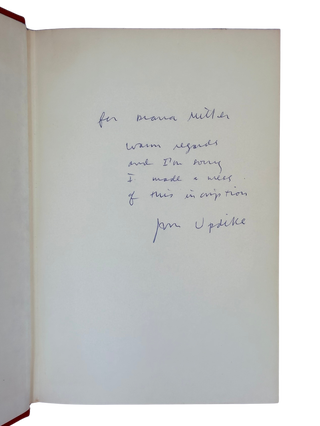 for Diana Miller
warm regards
and I'm sorry
I made a mess
of this inscription
John Updike